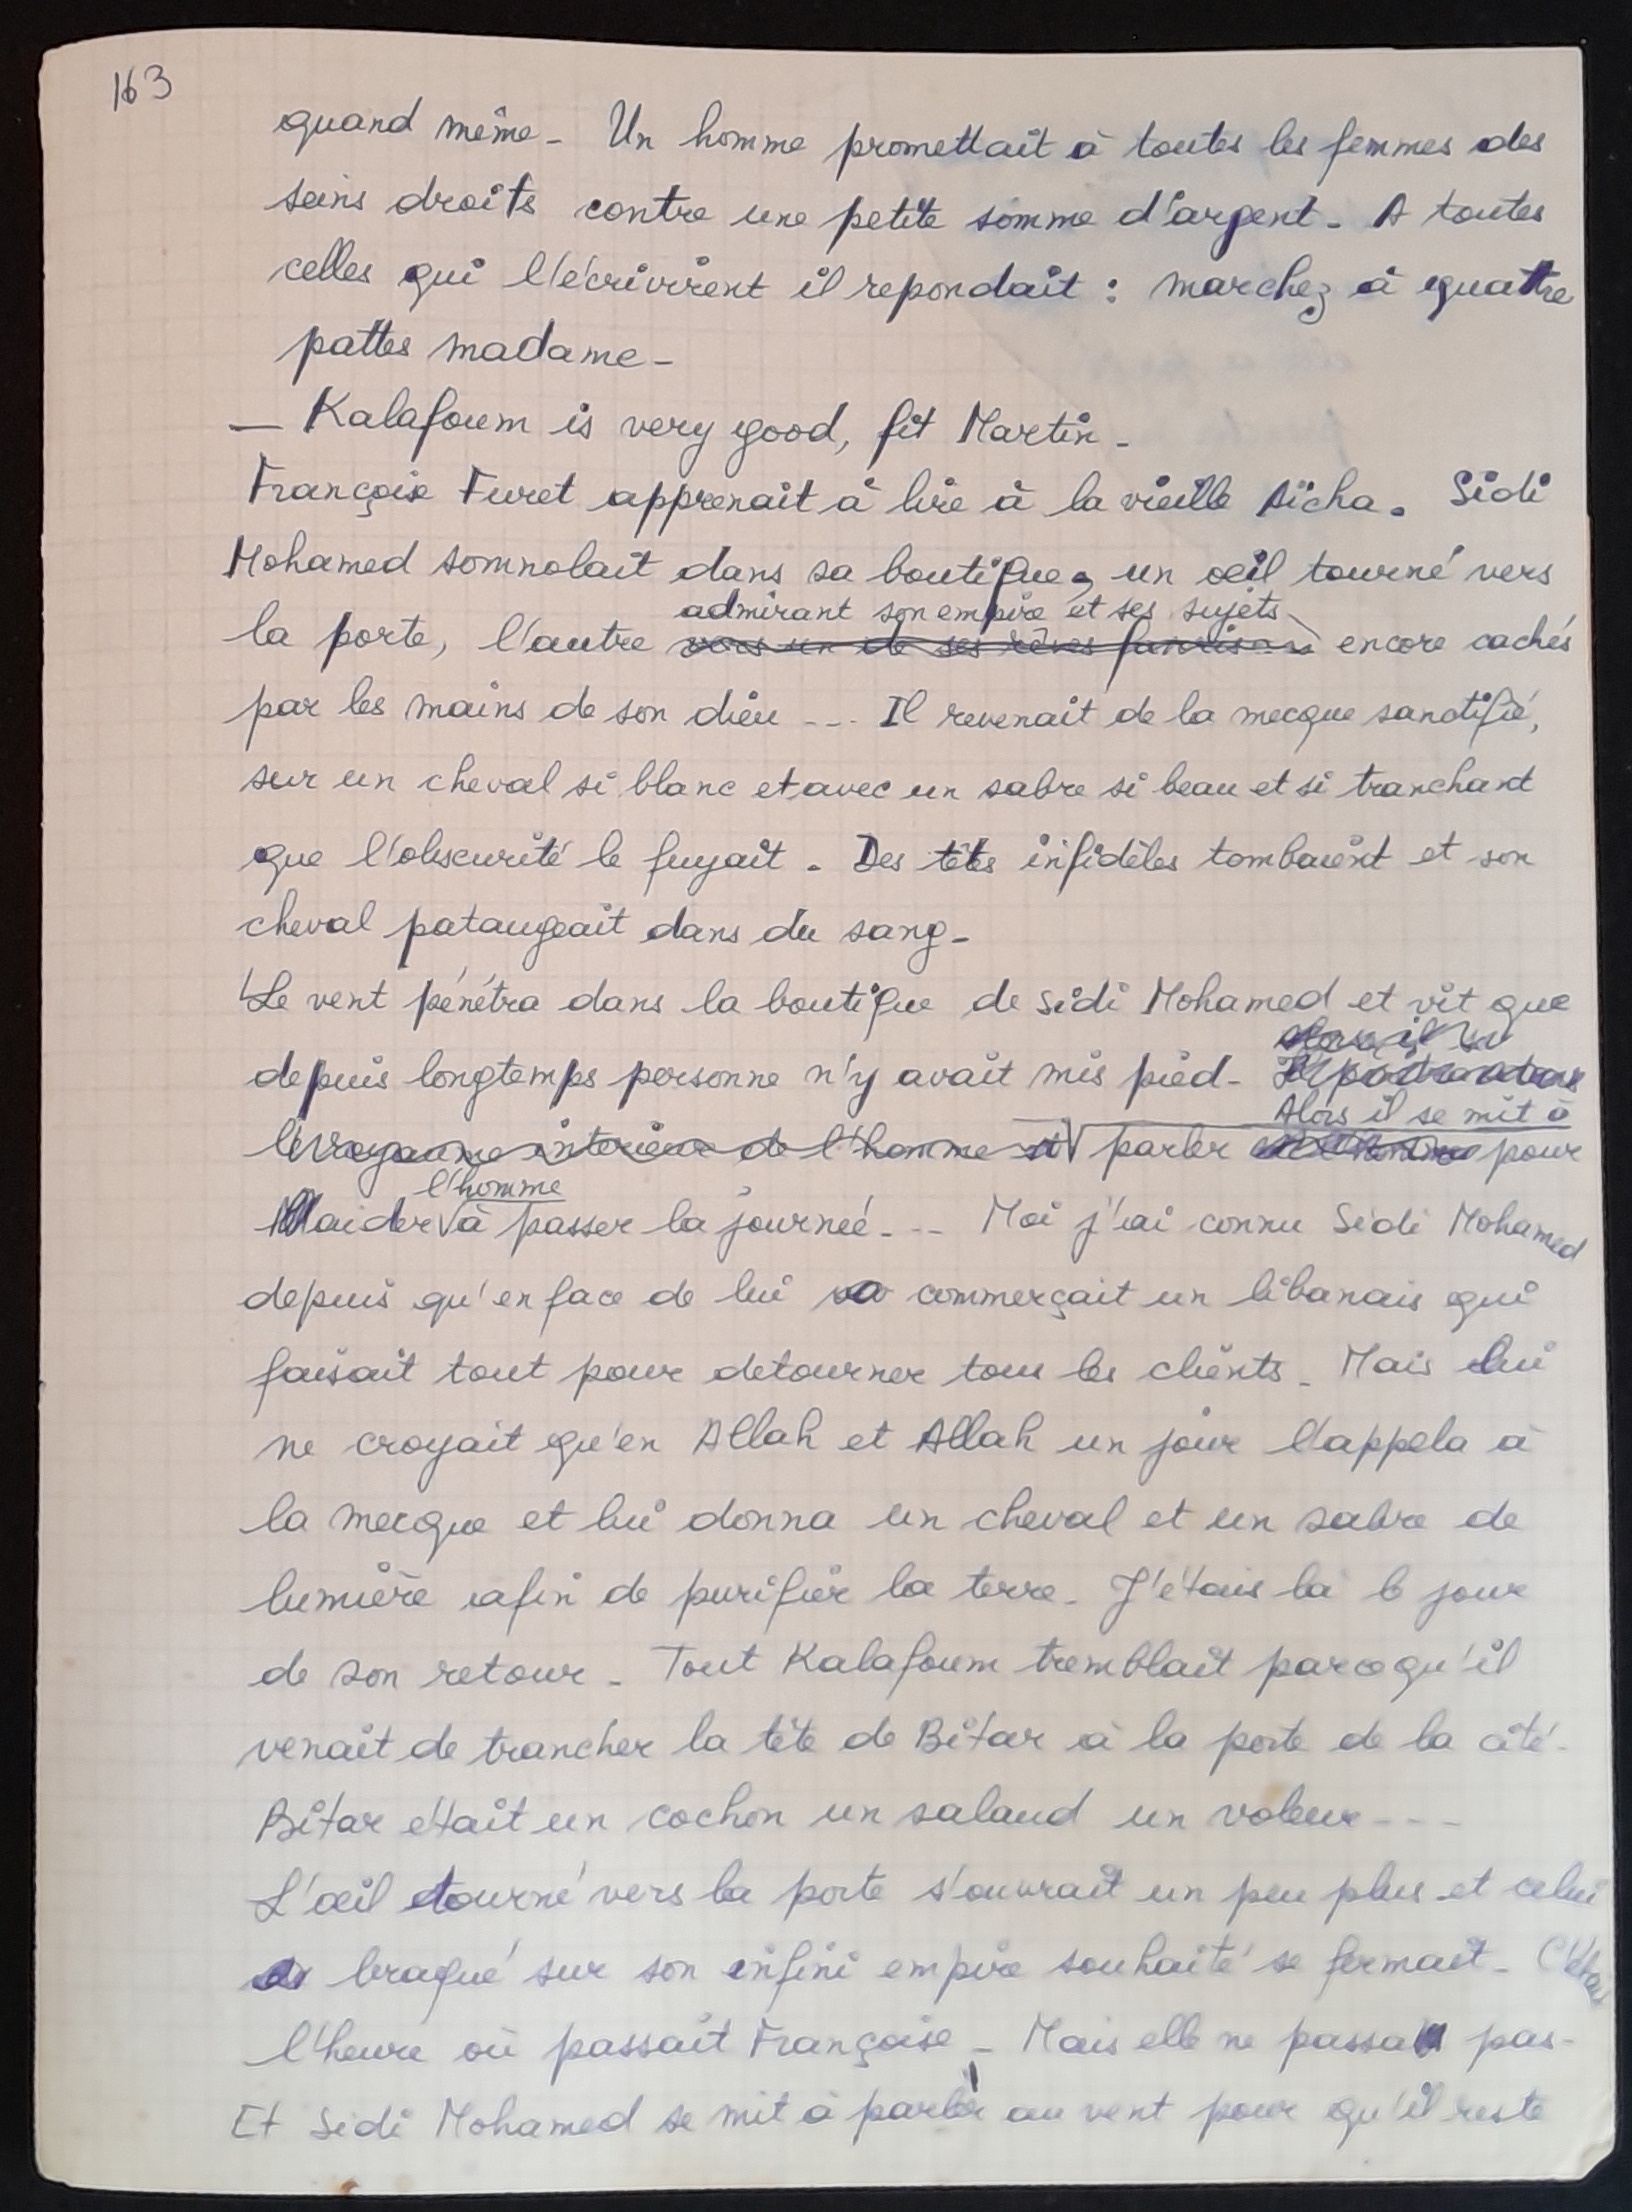 163
quand même - Un homme promettait à toutes les femmes des
seins droits contre une petite somme d'argent - A toutes
celles qui l'écrivirent il repondait : marchez à quattre
pattes madame -
— Kalafoum is very good, fit Martin -
Françoise Furet apprenait à lire à la vieille Aïcha. Sidi
Mohamed somnolait dans sa boutique, un œil tourné vers
admirant son empire et ses sujets
la porte, l'autre vers un de ses rêves encore cachés
par les mains de son dieu --- Il revenait de la mecque sanctifié,
sur un cheval si blanc et avec un sabre si beau et si tranchant
que l'obscurité le fuyait - Des têtes infidèles tombaient et son
cheval pataugeait dans du sang -
Le vent pénétra dans la boutique de sidi Mohamed et vit que
depuis longtemps personne n'y avait mis pied -
Alors il se mit à
le royaume interieur de l'homme et parler pour
l'homme
aider à passer la journeé --- Moi j'ai connu Sidi Mohamed
depuis qu'en face de lui commerçait un libanais qui
faisait tout pour detourner tous les clients - Mais lui
ne croyait qu'en Allah et Allah un jour l'appela à
la mecque et lui donna un cheval et un sabre de
lumière afin de purifier la terre - J'étais là le jour
de son retour - Tout Kalafoum tremblait parcequ'il
venait de trancher la tête de Bitar à la porte de la cité -
Bitar était un cochon un salaud un voleur ---
L'œil tourné vers la porte s'ouvrait un peu plus et celui
braqué sur son infini empire souhaité se fermait - C'était
l'heure où passait Françoise - Mais elle ne passa pas -
Et Sidi Mohamed se mit à parler au vent pour qu'il reste